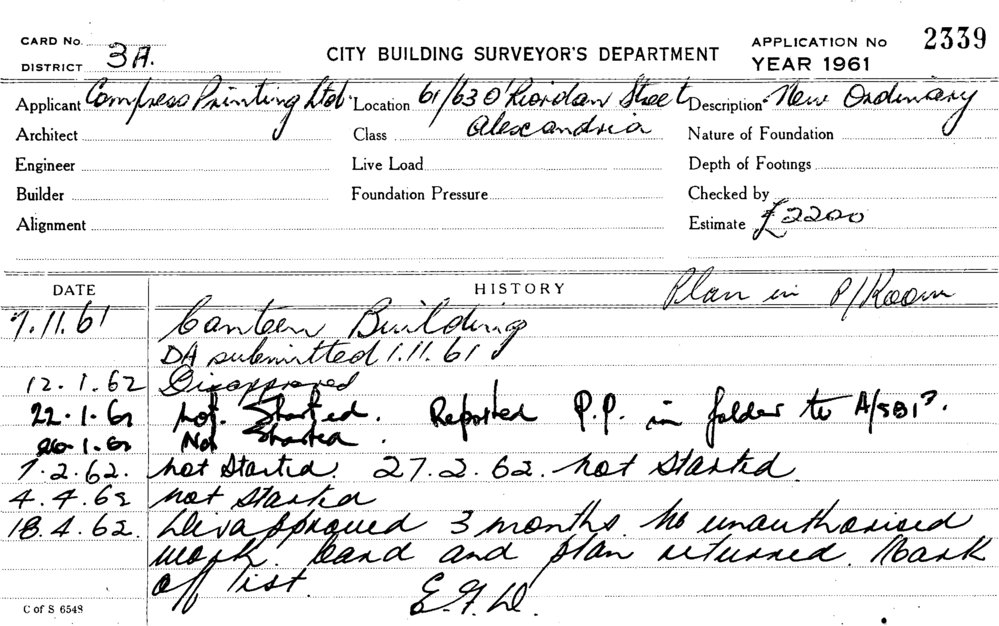 CARD No.
DISTRICT 3A.
CITY BUILDING SURVEYOR'S DEPARTMENT
APPLICATION No 2339
YEAR 1961
Applicant Compress Printing Ltd. Location 61/63 O'Riordan Street Description New Ordinary
Architect Class Alexandria Nature of Foundation
Engineer Live Load Depth of Footings
Builder Foundation Pressure Checked by
Alignment Estimate £2200
DATE HISTORY Plan in P/Room
7.11.61 Canteen Building
DA submitted 1.11.61
12.1.62 Disapproved
22.1.62 Not. Started. Reported P.P. in folder to A/SBI?.
26.1.62 Not Started.
7.2.62. Not Started. 27.2.62. Not Started.
4.4.62 Not Started
18.4.62. Disapproved 3 months. No unauthorised
work. Card and plan returned. Mark
off list. E.F.D.
C of S 6548